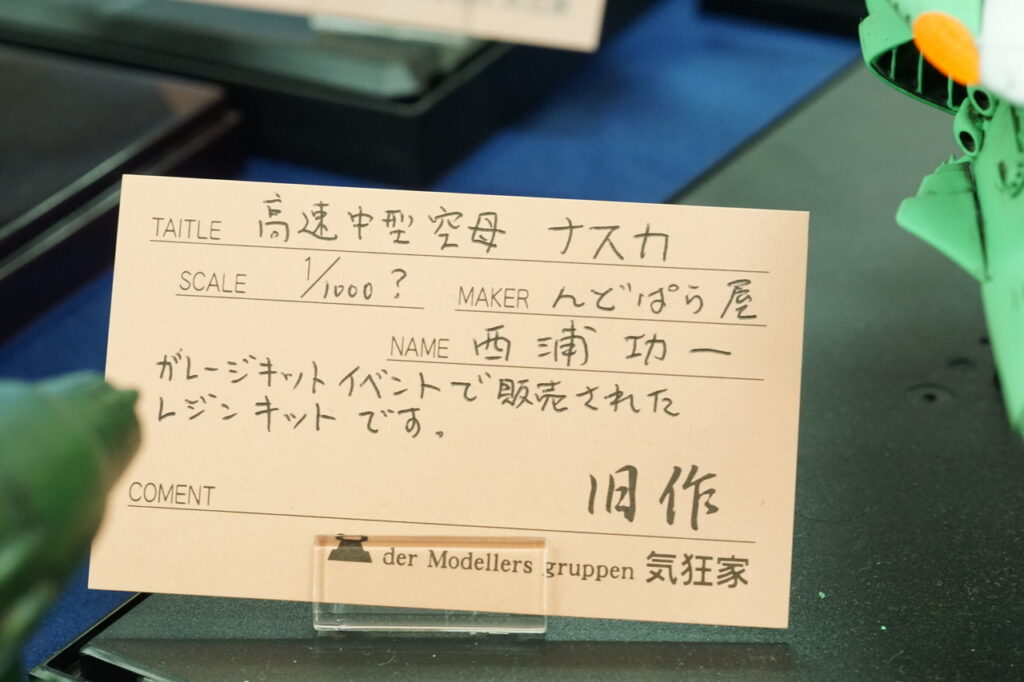 TAITLE 高速中型空母 ナスカ
SCALE 1/1000? MAKER んどぱら屋
NAME 西浦功一
ガレージキットイベントで販売された
レジンキットです。
旧作
COMENT
der Modellers gruppen 気狂家